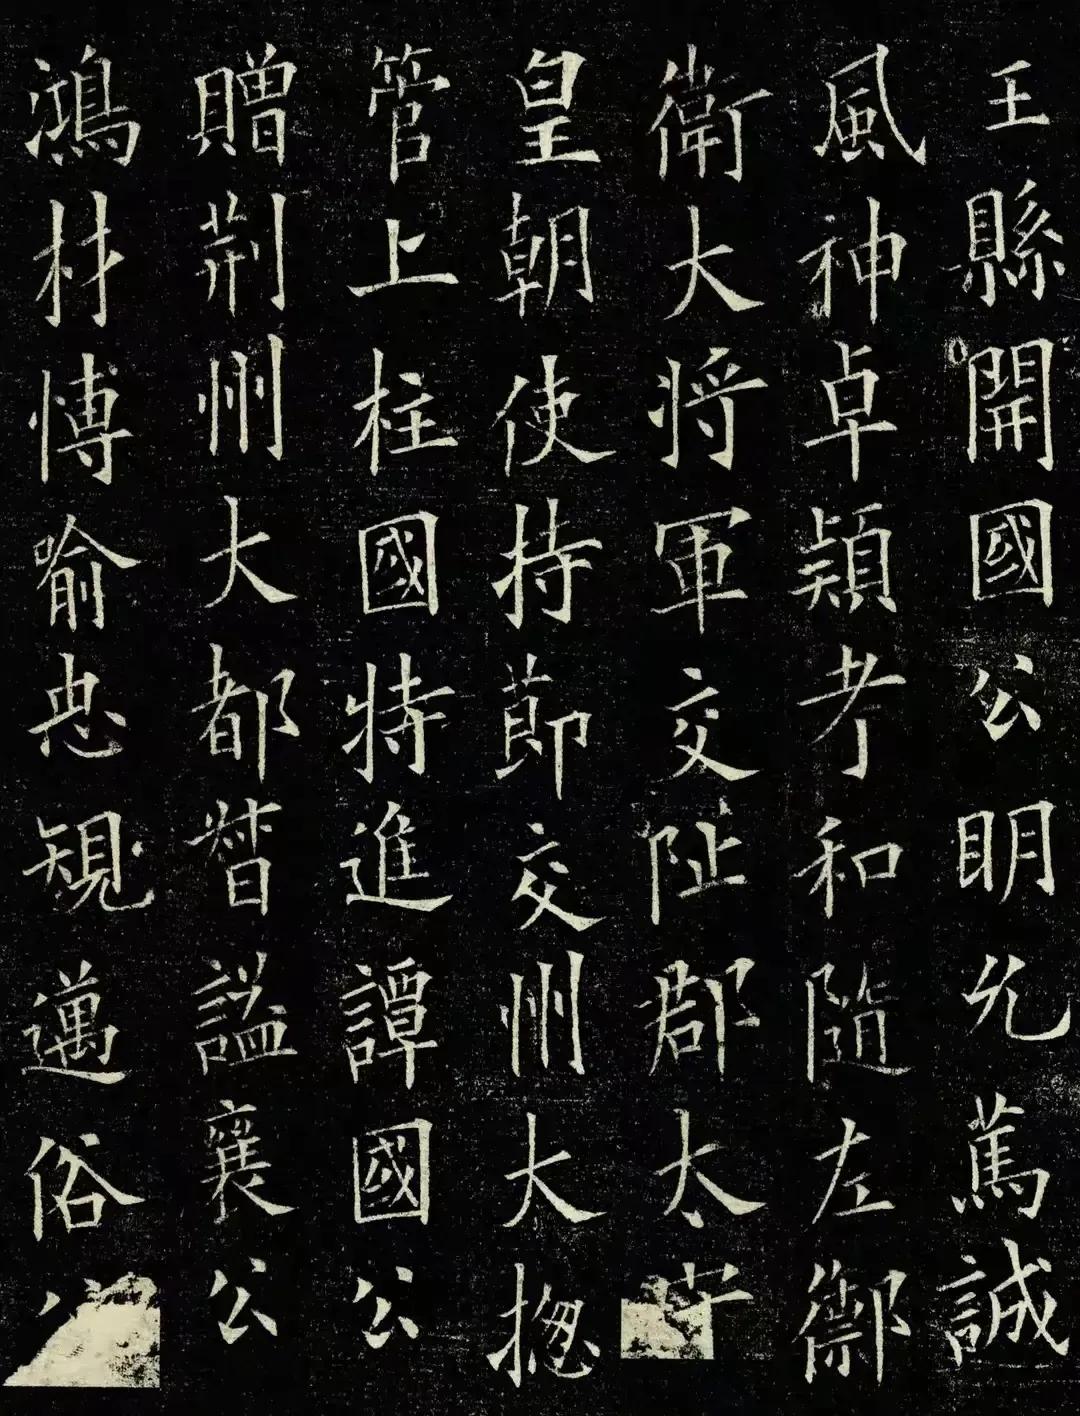 王縣開國公明允篤誠
風神卓穎考和隨左禦
衛大將軍交阯郡太守
皇朝使持節交州大揔
管上柱國特進譚國公
贈荊州大都督謚襄公
鴻材愽喻忠規邁俗